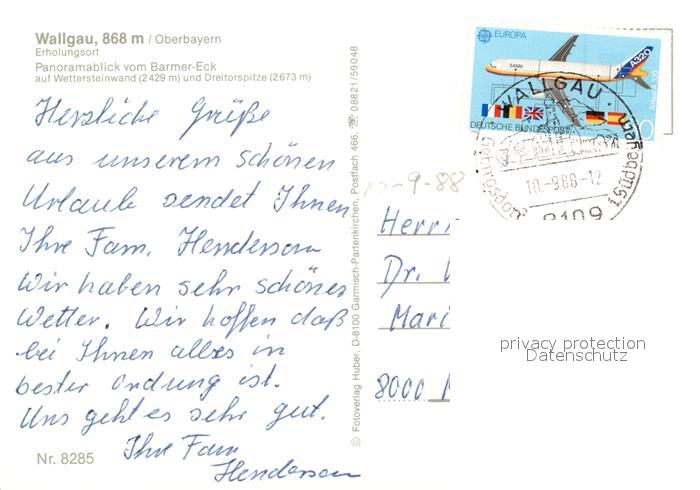 Wallgau, 868 m / Oberbayern
Erholungsort
Panoramablick vom Barmer-Eck
auf Wettersteinwand (2429 m) und Dreitorspitze (2673 m)
Herzliche Grüße
aus unserem schönen
Urlaub sendet Ihnen
Ihre Fam. Henderson
Wir haben sehr schönes
Wetter. Wir hoffen daß
bei Ihnen alles in
bester Ordnung ist.
Uns geht es sehr gut.
Ihre Fam
Henderson
Nr. 8285
© Fotoverlag Huber, D-8100 Garmisch-Partenkirchen, Postfach 466, ☎ 08821/59048
EUROPA
A320
Airbus A320
DEUTSCHE BUNDESPOST
WALLGAU
10.-9.88-12
8109
-9-88
Herrn
Dr.
Mari
8000
privacy protection
Datenschutz